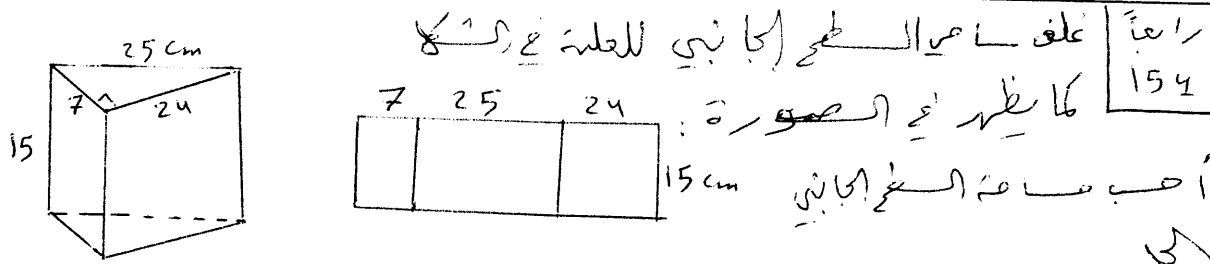 رابعاً
154
غلف سامر السطح الجانبي للعلبة في الشكل
كما يظهر في الصورة :
أحسب مساحة السطح الجانبي
الحل
25 cm
7
24
15
7 25 24
15 cm